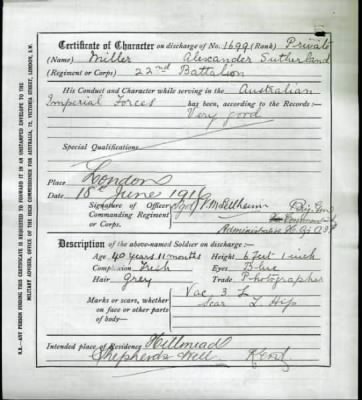 Certificate of Character on discharge of No. 1699 (Rank) Private
(Name) Miller Alexander Sutherland
(Regiment or Corps) 22nd Battalion
His Conduct and Character while serving in the Australian
Imperial Forces has been, according to the Records:-
Very good
Special Qualifications.
Place London
Date 15th June 1916
Signature of Officer
Commanding Regiment
or Corps.
Brig. Gen
Commandant
Administrative Hd Qrs
Description of the above-named Soldier on discharge:
Age 40 years 11 months Height 6 feet 1 inch
Complexion Fresh Eyes Blue
Hair Grey Trade Photographer
Marks or scars, whether
on face or other parts
of body:
Vac. 3 L
Scar L. Hip
Intended place of Residency Hillmead
Shepherds Well Kent
N.B.—ANY PERSON FINDING THIS CERTIFICATE IS REQUESTED TO FORWARD IT IN AN UNSTAMPED ENVELOPE TO THE
MILITARY ADVISER, OFFICE OF THE HIGH COMMISSIONER FOR AUSTRALIA, 72, VICTORIA STREET, LONDON, S.W.